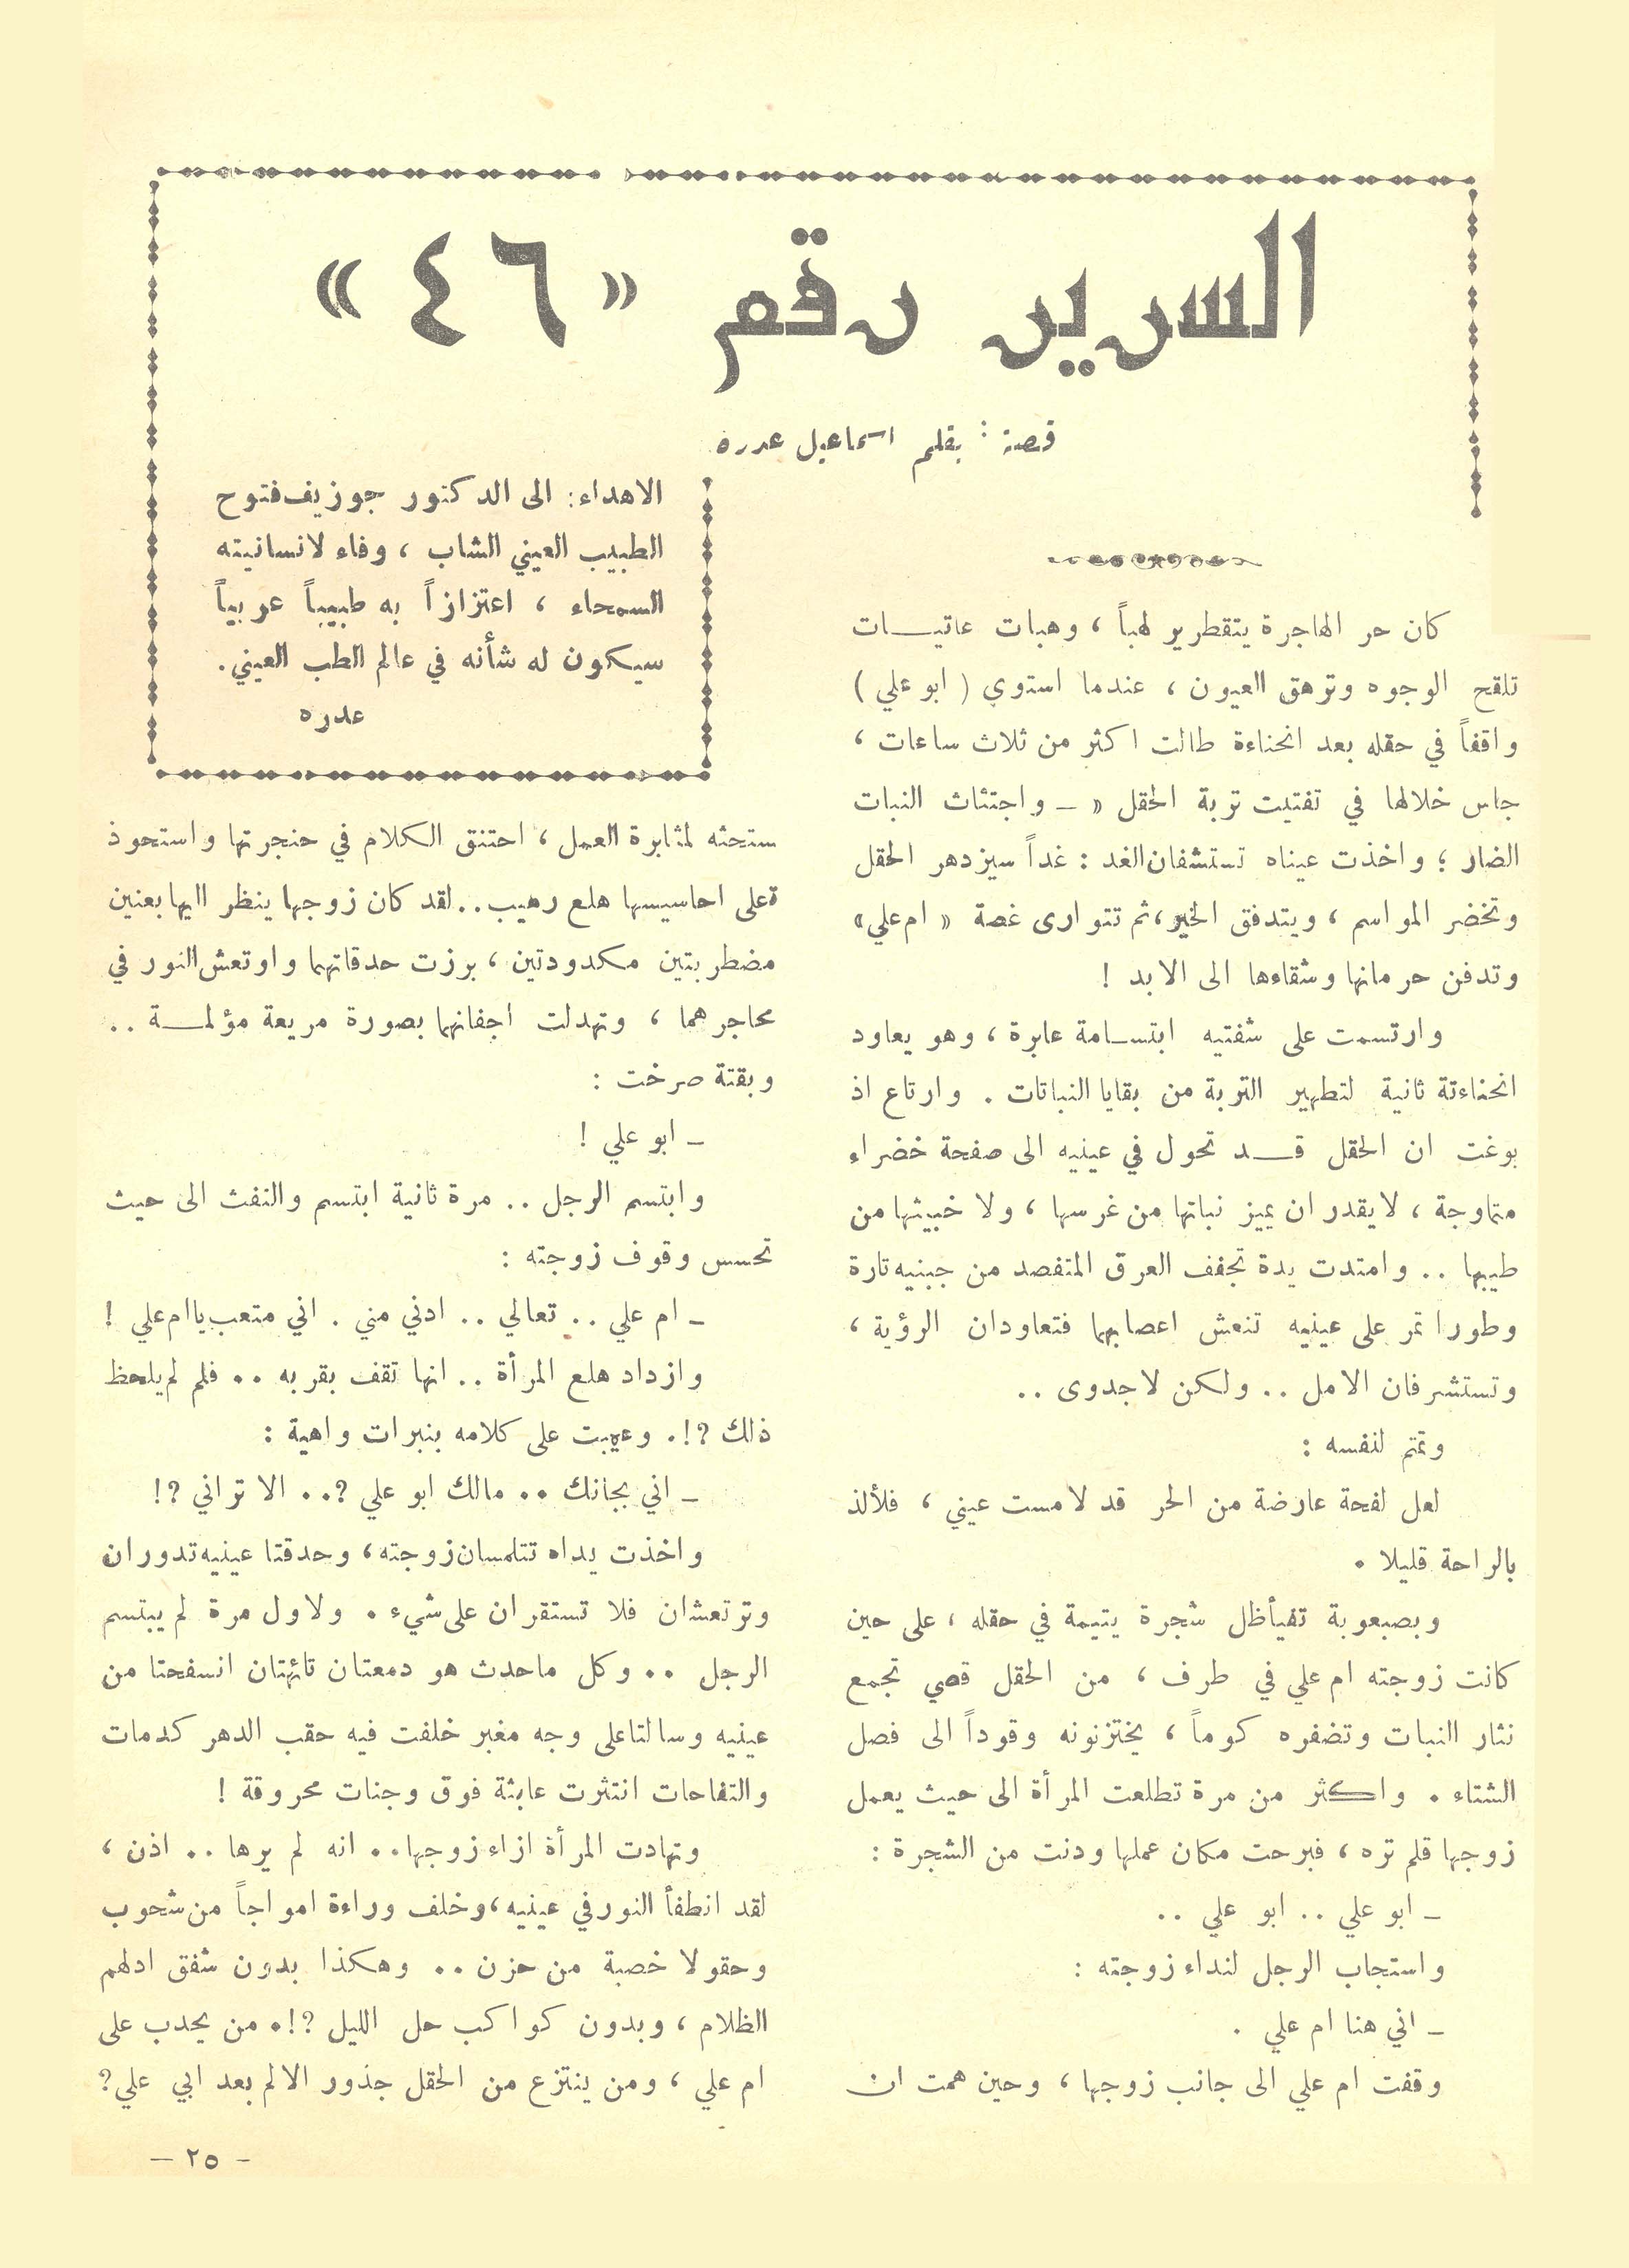 السرير رقم «٤٦»
قصة : بقلم اسماعيل عدره
الاهداء: الى الدكتور جوزيف فتوح
الطبيب العيني الشاب ، وفاء لانسانيته
السمحاء ، اعتزازاً به طبيباً عربياً
سيكون له شأنه في عالم الطب العيني .
عدره
كان حر الهاجرة يتقطرير لهباً ، وهبات عاتيات
تلقح الوجوه وترهق العيون ، عندما استوي ( ابو علي )
واقفاً في حقله بعد انحناءة طالت اكثر من ثلاث ساعات ،
جاس خلالها في تفتيت تربة الحقل « – واجتثاث النبات
الضار ؛ واخذت عيناه تستشفان الغد : غداً سيزدهر الحقل
وتخضر المواسم ، ويتدفق الخير ، ثم تتوارى غصة « ام علي »
وتدفن حرمانها وشقاءها الى الابد !
وارتسمت على شفتيه ابتسامة عابرة ، وهو يعاود
انحناءتة ثانية لتطهير التربة من بقايا النباتات . وارتاع اذ
بوغت ان الحقل قد تحول في عينيه الى صفحة خضراء
متماوجة ، لايقدر ان يميز نباتها من غرسها ، ولا خبيثها من
طيبها .. وامتدت يدة تجفف العرق المتفصد من جبنيه تارة
وطورا تمر على عينيه تنعش اعصابهما فتعاودان الرؤية ،
وتستشرفان الامل .. ولكن لاجدوى ..
وتمتم لنفسه :
لعل لفحة عارضة من الحر قد لامست عيني ، فلألذ
بالراحة قليلا .
وبصعوبة تفيأ ظل شجرة يتيمة في حقله ، على حين
كانت زوجته ام علي في طرف ، من الحقل قصي تجمع
نثار النبات وتضفره كوماً ، يختزنونه وقوداً الى فصل
الشتاء . واكثر من مرة تطلعت المرأة الى حيث يعمل
زوجها قلم تره ، فبرحت مكان عملها ودنت من الشجرة :
– ابو علي .. ابو علي ..
واستجاب الرجل لنداء زوجته :
– اني هنا ام علي .
وقفت ام علي الى جانب زوجها ، وحين همت ان
ستحثه لمثابرة العمل ، احتنق الكلام في حنجرتها واستحوذ
ةعلى احاسيسها هلع رهيب .. لقد كان زوجها ينظر اليها بعنين
مضطربتين مكدودتين ، برزت حدقاتهما واوتعش النور في
محاجرهما ، وتهدلت اجفانهما بصورة مريعة مؤلمة ..
وبقتة صرخت :
– ابو علي !
وابتسم الرجل .. مرة ثانية ابتسم والتفث الى حيث
تحسس وقوف زوجته :
– ام علي .. تعالي .. ادني مني . اني متعب يا ام علي !
وازداد هلع المرأة .. انها تقف بقربه .. فلم لم يلحظ
ذلك ?!. وعيبت على كلامه بنبرات واهية :
– اني بجانك .. مالك ابو علي ?.. الا تراني ?!
واخذت يداه تتلمسان زوجته ، وحدقتا عينيه تدوران
وترتعشان فلا تستقران على شيء . ولاول مرة لم يبتسم
الرجل .. وكل ماحدث هو دمعتان تائهتان انسفحتا من
عينيه وسالتا على وجه مغبر خلفت فيه حقب الدهر كدمات
والتفاحات انتثرت عابثة فوق وجنات محروقة !
وتهادت المرأة ازاء زوجها .. انه لم يرها .. اذن ،
لقد انطفأ النور في عينيه ، وخلف وراءة امواجاً من شحوب
وحقولا خصبة من حزن .. وهكذا بدون شفق ادلهم
الظلام ، وبدون كواكب حل الليل ?!. من يحدب على
ام علي ، ومن ينتزع من الحقل جذور الالم بعد ابي علي ?
– ٢٥ –